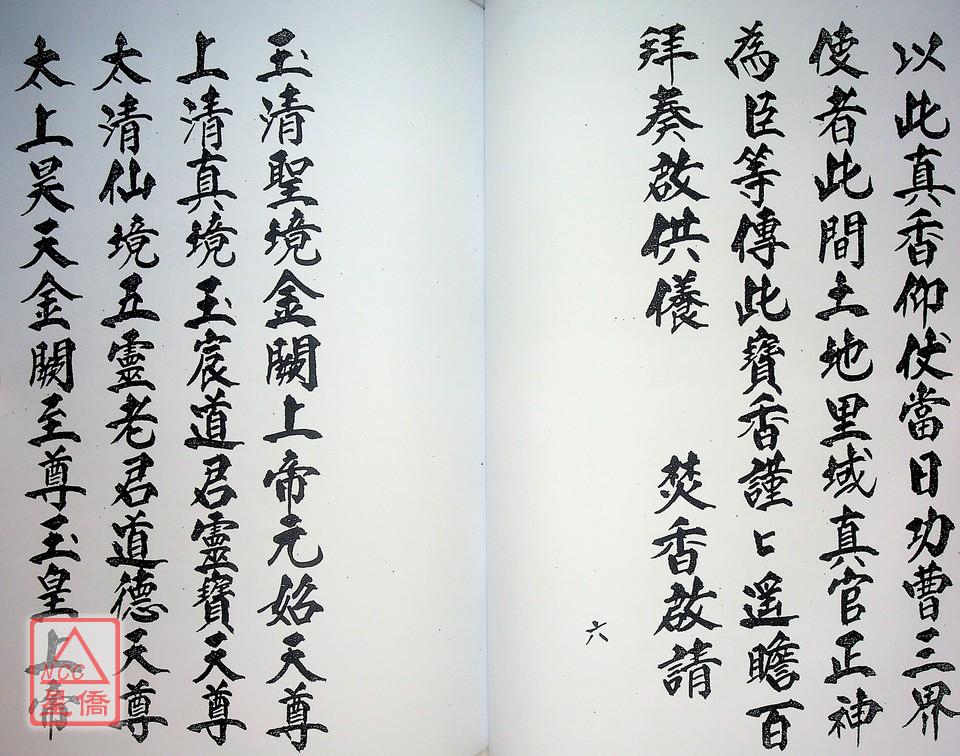 以此真香仰伏當日功曹三界
使者此間土地里域真官正神
為臣等傳此寶香謹〻遥瞻百
拜奏啟供養　焚香啟請
六
玉清聖境金闕上帝元始天尊
上清真境玉宸道君靈寶天尊
太清仙境五靈老君道德天尊
太上昊天金闕至尊玉皇上帝
NCC
星僑